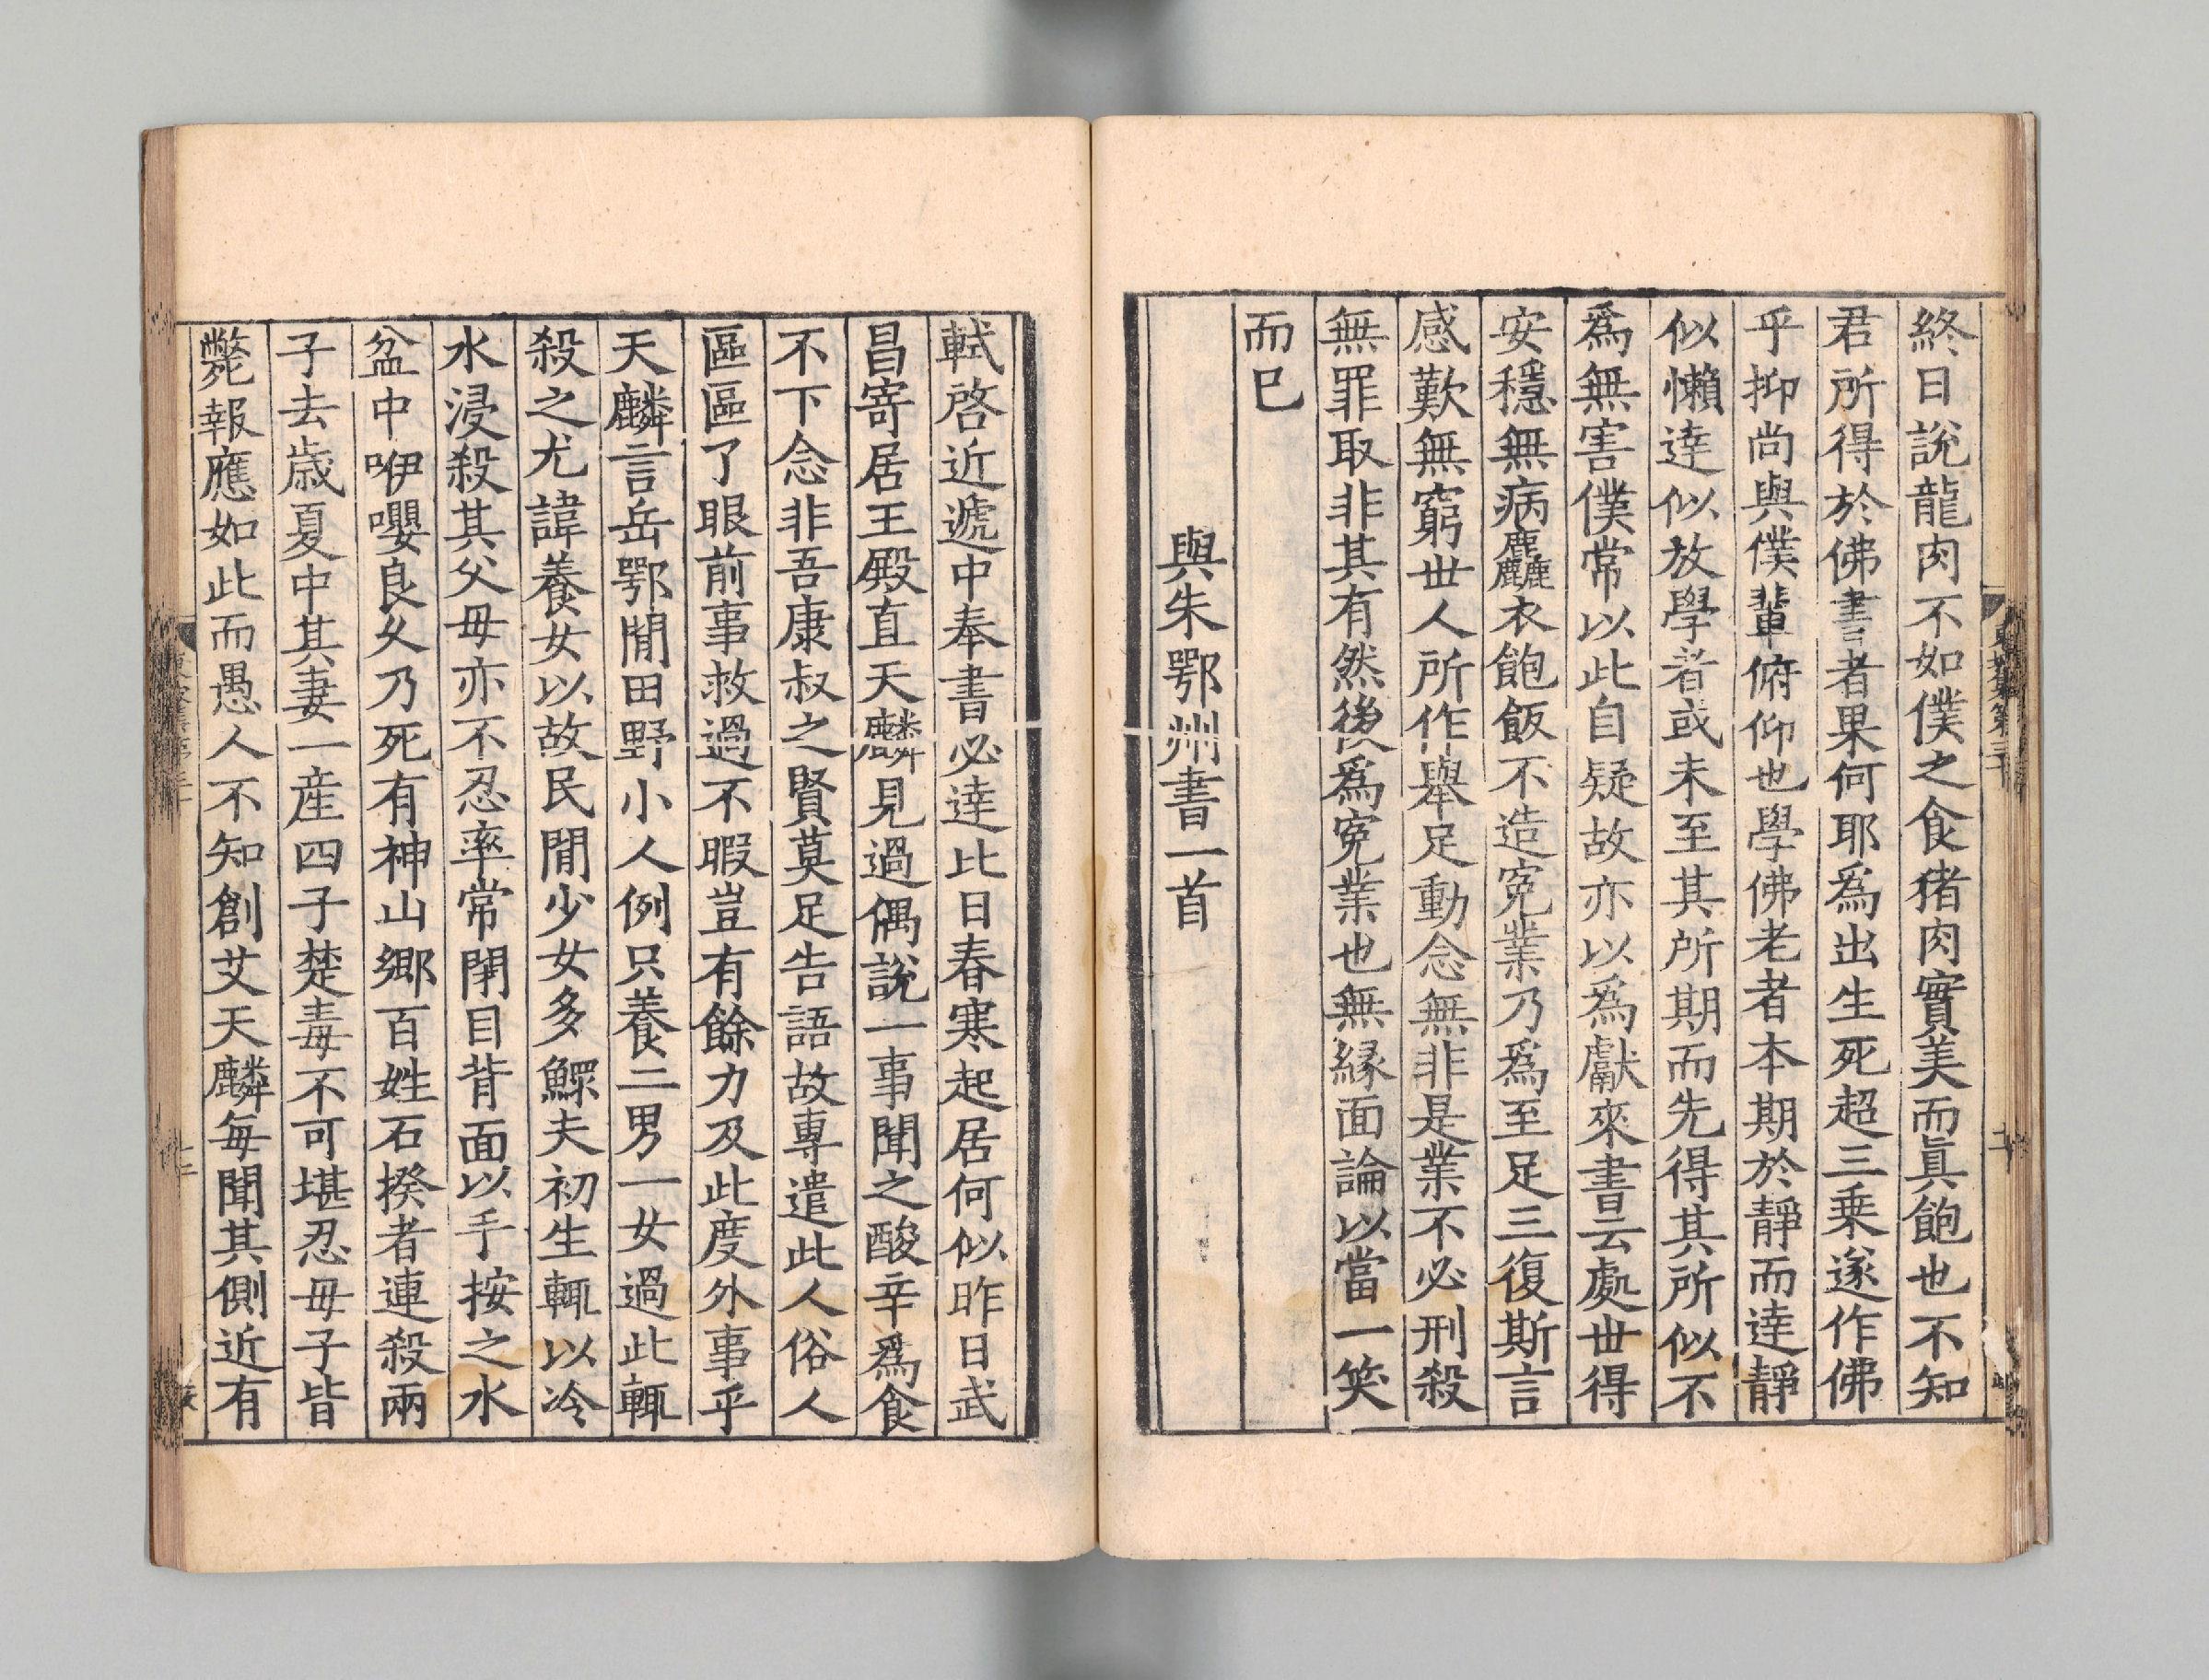 終日說龍肉不如僕之食猪肉實美而眞飽也不知
君所得於佛書者果何耶爲出生死超三乗遂作佛
乎抑尚與僕輩俯仰也學佛老者本期於靜而逹靜
似懶逹似放學者或未至其所期而先得其所似不
爲無害僕常以此自疑故亦以爲獻來書云處世得
安穩無病麤衣飽飯不造寃業乃爲至足三復斯言
感歎無窮世人所作舉足動念無非是業不必刑殺
無罪取非其有然後爲寃業也無縁面論以當一笑
而已
與朱鄂州書一首
軾啓近遞中奉書必逹比日春寒起居何似昨日武
昌寄居王殿直天麟見過偶說一事聞之酸辛爲食
不下念非吾康叔之賢莫足告語故專遣此人俗人
區區了眼前事救過不暇豈有餘力及此度外事乎
天麟言岳鄂閒田野小人例只養二男一女過此輒
殺之尤諱養女以故民閒少女多鰥夫初生輒以冷
水浸殺其父母亦不忍率常閉目背面以手按之水
盆中咿嚶良乆乃死有神山鄉百姓石揆者連殺兩
子去歲夏中其妻一産四子楚毒不可堪忍母子皆
斃報應如此而愚人不知創艾天麟每聞其側近有